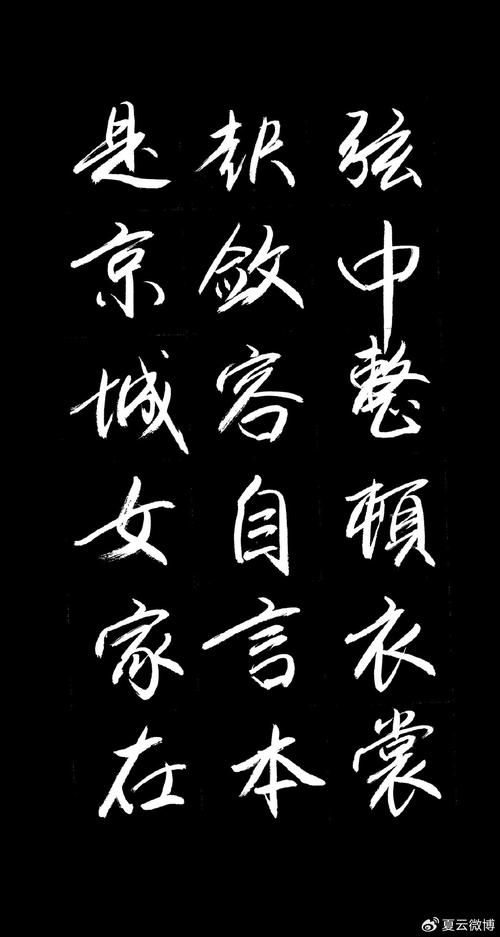 弦中整頓衣裳
起斂容自言本
是京城女家在
夏云微博